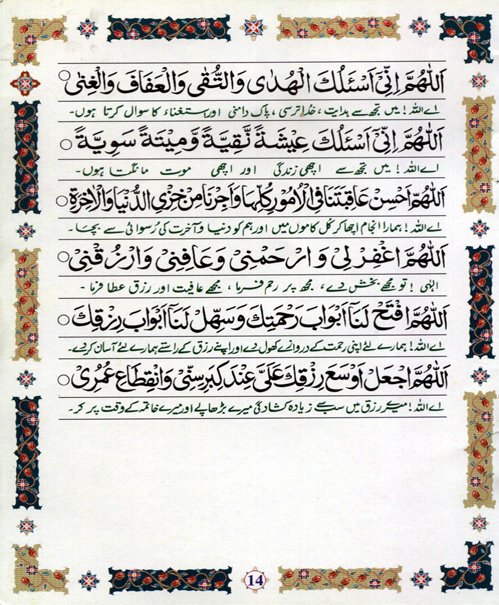 اَللّٰهُمَّ اِنِّیْٓ اَسْئَلُكَ الْهُدٰى وَالتُّقٰى وَالْعَفَافَ وَالْغِنٰى ○
اے اللہ! میں تجھ سے ہدایت، خدا ترسی، پاک دامنی اور استغناء کا سوال کرتا ہوں۔
اَللّٰهُمَّ اِنِّیْٓ اَسْئَلُكَ عِیْشَةً نَّقِیَّةً وَّمِیْتَةً سَوِیَّةً ○
اے اللہ! میں تجھ سے اچھی زندگی اور اچھی موت مانگتا ہوں۔
اَللّٰهُمَّ اَحْسِنْ عَاقِبَتَنَا فِی الْاُمُوْرِ كُلِّهَا وَاَجِرْنَا مِنْ خِزْیِ الدُّنْیَا وَالْاٰخِرَةِ ○
اے اللہ! ہمارا انجام اچھا کر کل کاموں میں اور ہم کو دنیا و آخرت کی رسوائی سے بچا۔
اَللّٰهُمَّ اغْفِرْ لِیْ وَارْحَمْنِیْ وَعَافِنِیْ وَارْزُقْنِیْ ○
الہی! تو مجھے بخش دے، مجھ پر رحم فرما، مجھے عافیت اور رزق عطا فرما۔
اَللّٰهُمَّ افْتَحْ لَنَآ اَبْوَابَ رَحْمَتِكَ وَسَهِّلْ لَنَآ اَبْوَابَ رِزْقِكَ ○
اے اللہ! ہمارے لئے اپنی رحمت کے دروازے کھول دے اور اپنے رزق کے راستے ہمارے لئے آسان کر دے۔
اَللّٰهُمَّ اجْعَلْ اَوْسَعَ رِزْقِكَ عَلَیَّ عِنْدَ كِبَرِ سِنِّیْ وَانْقِطَاعِ عُمُرِیْ ○
اے اللہ! میرے رزق میں سب سے زیادہ کشادگی میرے بڑھاپے اور میرے خاتمہ کے وقت پر کر۔
14